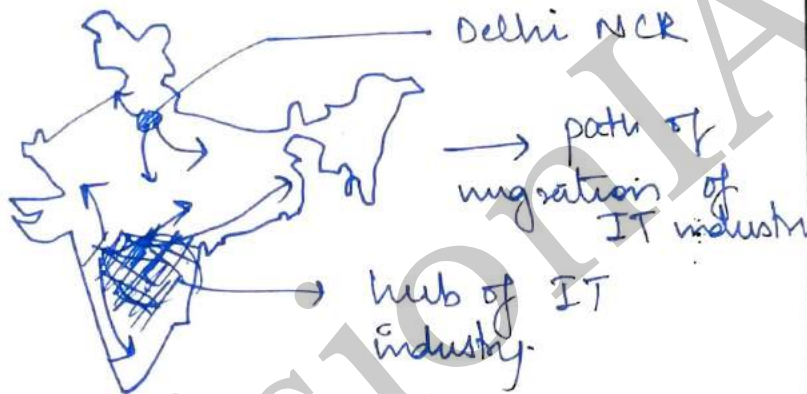 Delhi NCR
path of
migration of
IT industr
hub of IT
industry.